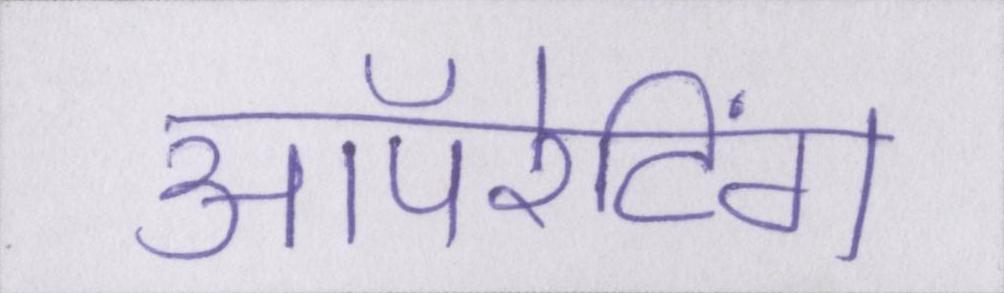 ऑपरेटिंग